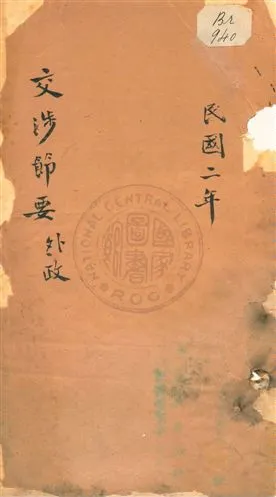 Br
940
民國二年
交涉節要 外政
NATIONAL CENTRAL LIBRARY
ROC
國家圖書館